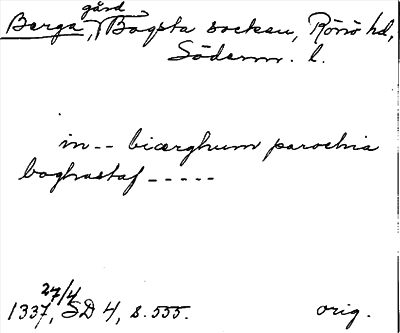 Berga, gård, Bogsta socken, Rönö hd,
Söderm. l.
in -- biærghum parochia
boghastaf -----
27/4
1337, SD 4, s. 555. orig.